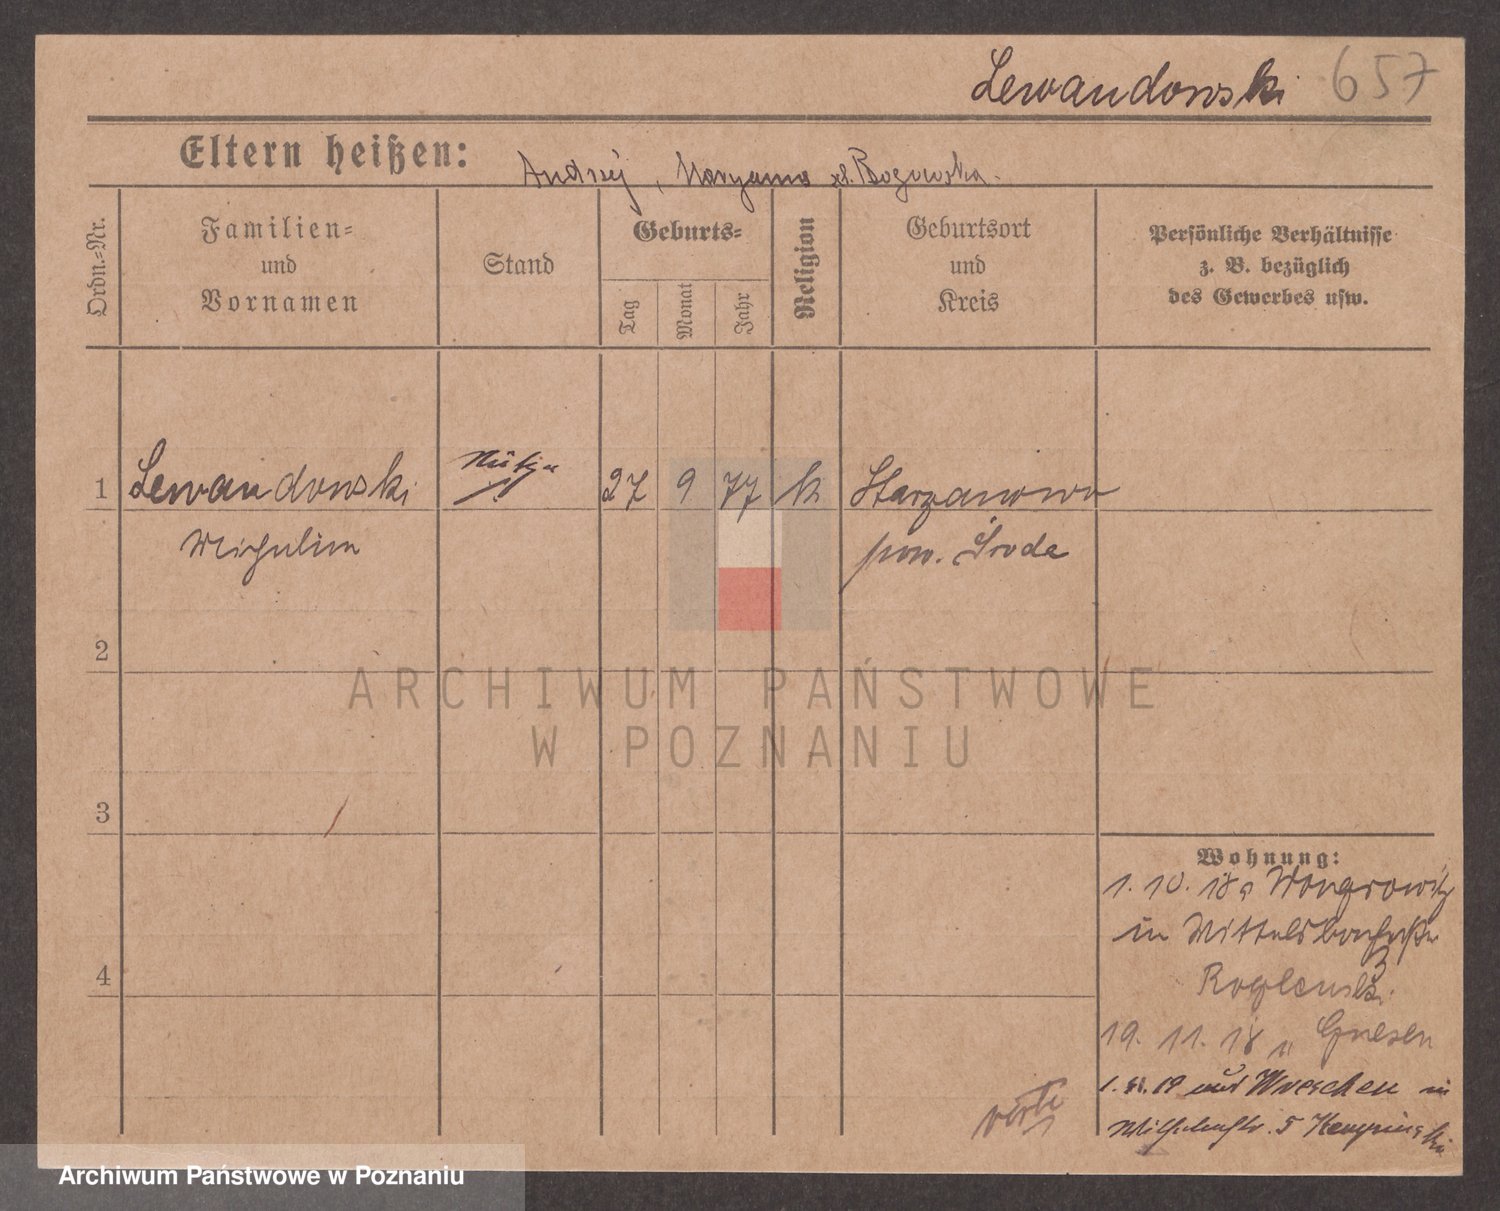 Lewandowski 657
Eltern heißen: Andrzej, Maryanna zd. Rogowska.
Ordn.-Nr.
Familien-
und
Vornamen
Stand
Geburts-
Tag
Monat
Jahr
Religion
Geburtsort
und
Kreis
Persönliche Verhältnisse
z. B. bezüglich
des Gewerbes usw.
1 Lewandowski 27 9 77 k Starzanowo
pow. Środa
2
3
4
Wohnung:
1. 10. 18 Wongrowitz
in
19. 11. 18 Gnesen
1. 19 auf Wreschen in
Wilhelmstr. 5 Kempinski
verte
ARCHIWUM PAŃSTWOWE
W POZNANIU
Archiwum Państwowe w Poznaniu